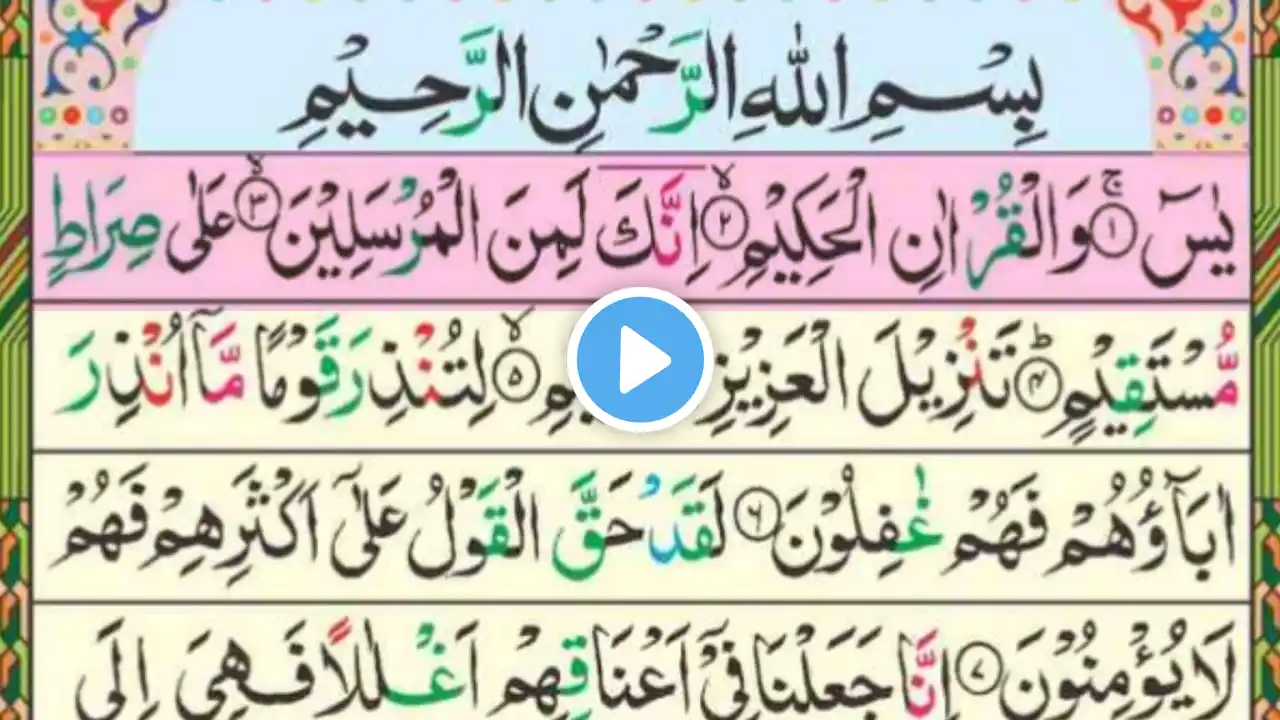 بِسْمِ اللّٰهِ الرَّحْمٰنِ الرَّحِيْمِ
يٰسٓ ۚ‏﴿۱﴾ وَالْقُرْاٰنِ الْحَكِيْمِ ۙ‏﴿۲﴾ اِنَّكَ لَمِنَ الْمُرْسَلِيْنَ ۙ‏﴿۳﴾ عَلٰى صِرَاطٍ
مُّسْتَقِيْمٍ ؕ‏﴿۴﴾ تَنْزِيْلَ الْعَزِيْزِ ۙ‏﴿۵﴾ لِتُنْذِرَ قَوْمًا مَّاۤ اُنْذِرَ
اٰبَآؤُهُمْ فَهُمْ غٰفِلُوْنَ ﴿۶﴾ لَقَدْ حَقَّ الْقَوْلُ عَلٰٓى اَكْثَرِهِمْ فَهُمْ
لَا يُؤْمِنُوْنَ ﴿۷﴾ اِنَّا جَعَلْنَا فِىْۤ اَعْنَاقِهِمْ اَغْلٰلًا فَهِىَ اِلَى